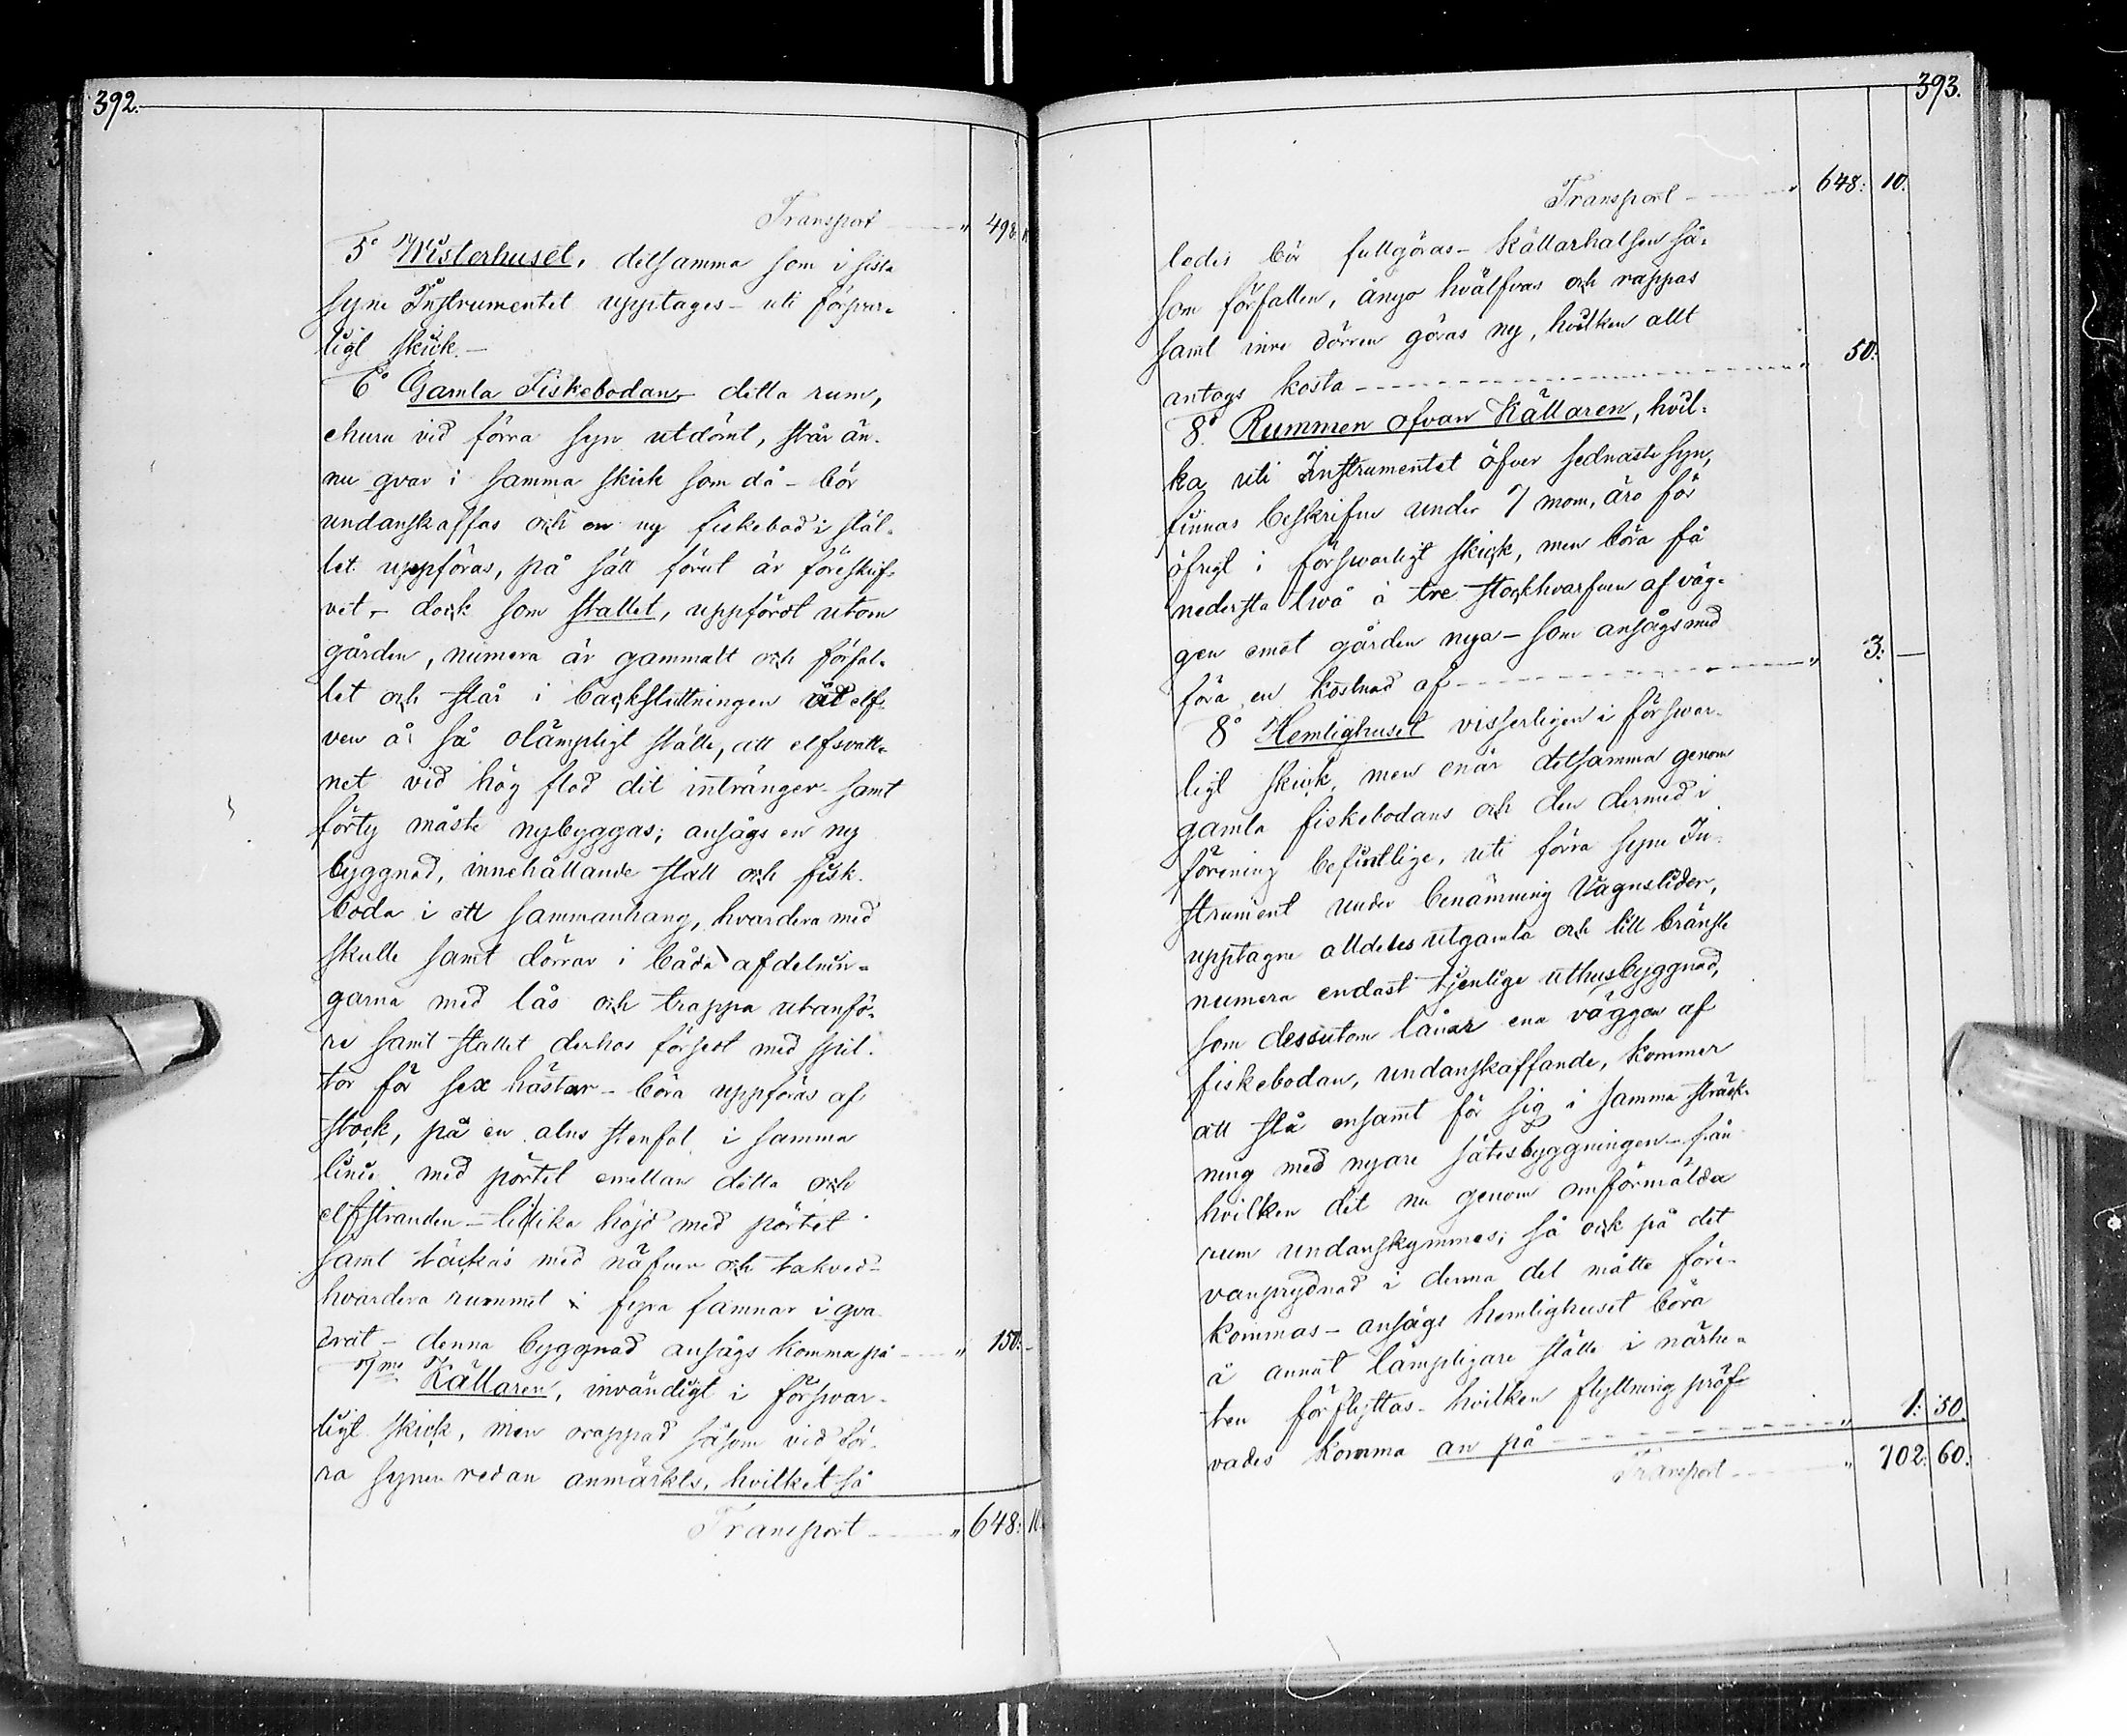 392.
Transport " 498: 1
5° Wisterhuset, detsamma som i sista
syne Instrumentet upptages – uti försvar-
ligt skick. –
6° Gamla Fiskebodan – detta rum,
ehuru vid förra syn utdömt, står än-
nu qvar i samma skick som då – bör
undanskaffas och en ny fiskebod i stäl-
let uppföras, på sätt förut är föreskrif-
vet – dock som stallet, uppfördt utom
gården, numera är gammalt och förfal-
let och står i backsluttningen åt elf-
ven å så olämpligt ställe, att elfsvatt-
net vid hög flod dit intränger – samt
förty måste nybyggas; ansågs en ny
byggnad, innehållande stall och fisk-
boda i ett sammanhang, hvardera med
skulle samt dörrar i båda afdelnin-
garna med lås och trappa utanfö-
re samt stallet derhos försedt med spil-
tor för sex hästar – böra uppföras af
stock, på en alns stenfot i samma
linie med pörtet emellan detta och
elfstranden – lidika höjd med pörtet
samt täckas med näfver och takved –
hvardera rummet i fyra famnar i qva-
drat – denna byggnad ansågs komma på " 150: –
7me Källaren, invändigt i försvar-
ligt skick, men orappad såsom vid för-
ra synen redan anmärkts, hvilket så
Transport " 648: 10.
393.
Transport " 648: 10.
ledes bör fullgöras – källarhalsen så-
som förfallen, ånyo hvälfvas och rappas
samt inre dörren göras ny, hvilken allt
antogs kosta " 50:
8° Rummen ofvan Källaren, hvil-
ka uti Instrumentet öfver sednaste syn,
finnas beskrifne under 7 mom, äro för
öfrigt i försvarligt skick, men böra få
nedersta två à tre stockhvarfven af väg-
gen emot gården nya – som ansågs med
föra en kostnad af " 3: –
8° Hemlighuset visserligen i försvar-
ligt skick, men enär detsamma genom
gamla fiskebodans och den dermed i
förening befintlige, uti förra syne In-
strument under benämning Vagnslider,
upptagne alldeles utgamla och till bränsle
numera endast tjenlige uthusbyggnad,
som dessutom lånar ena väggen af
fiskebodan, undanskaffande, kommer
att stå ensamt för sig i samma sträck-
ning med nyare sätesbyggningen – från
hvilken det nu genom omförmälda
rum undanskymmes; så ock på det
vanprydnad i denna del måtte före-
kommas – ansågs hemlighuset böra
å annat lämpligare ställe i närhe-
ten förflyttas – hvilken flyttning pröf-
vades komma an på " 1: 50.
Transport " 702: 60.